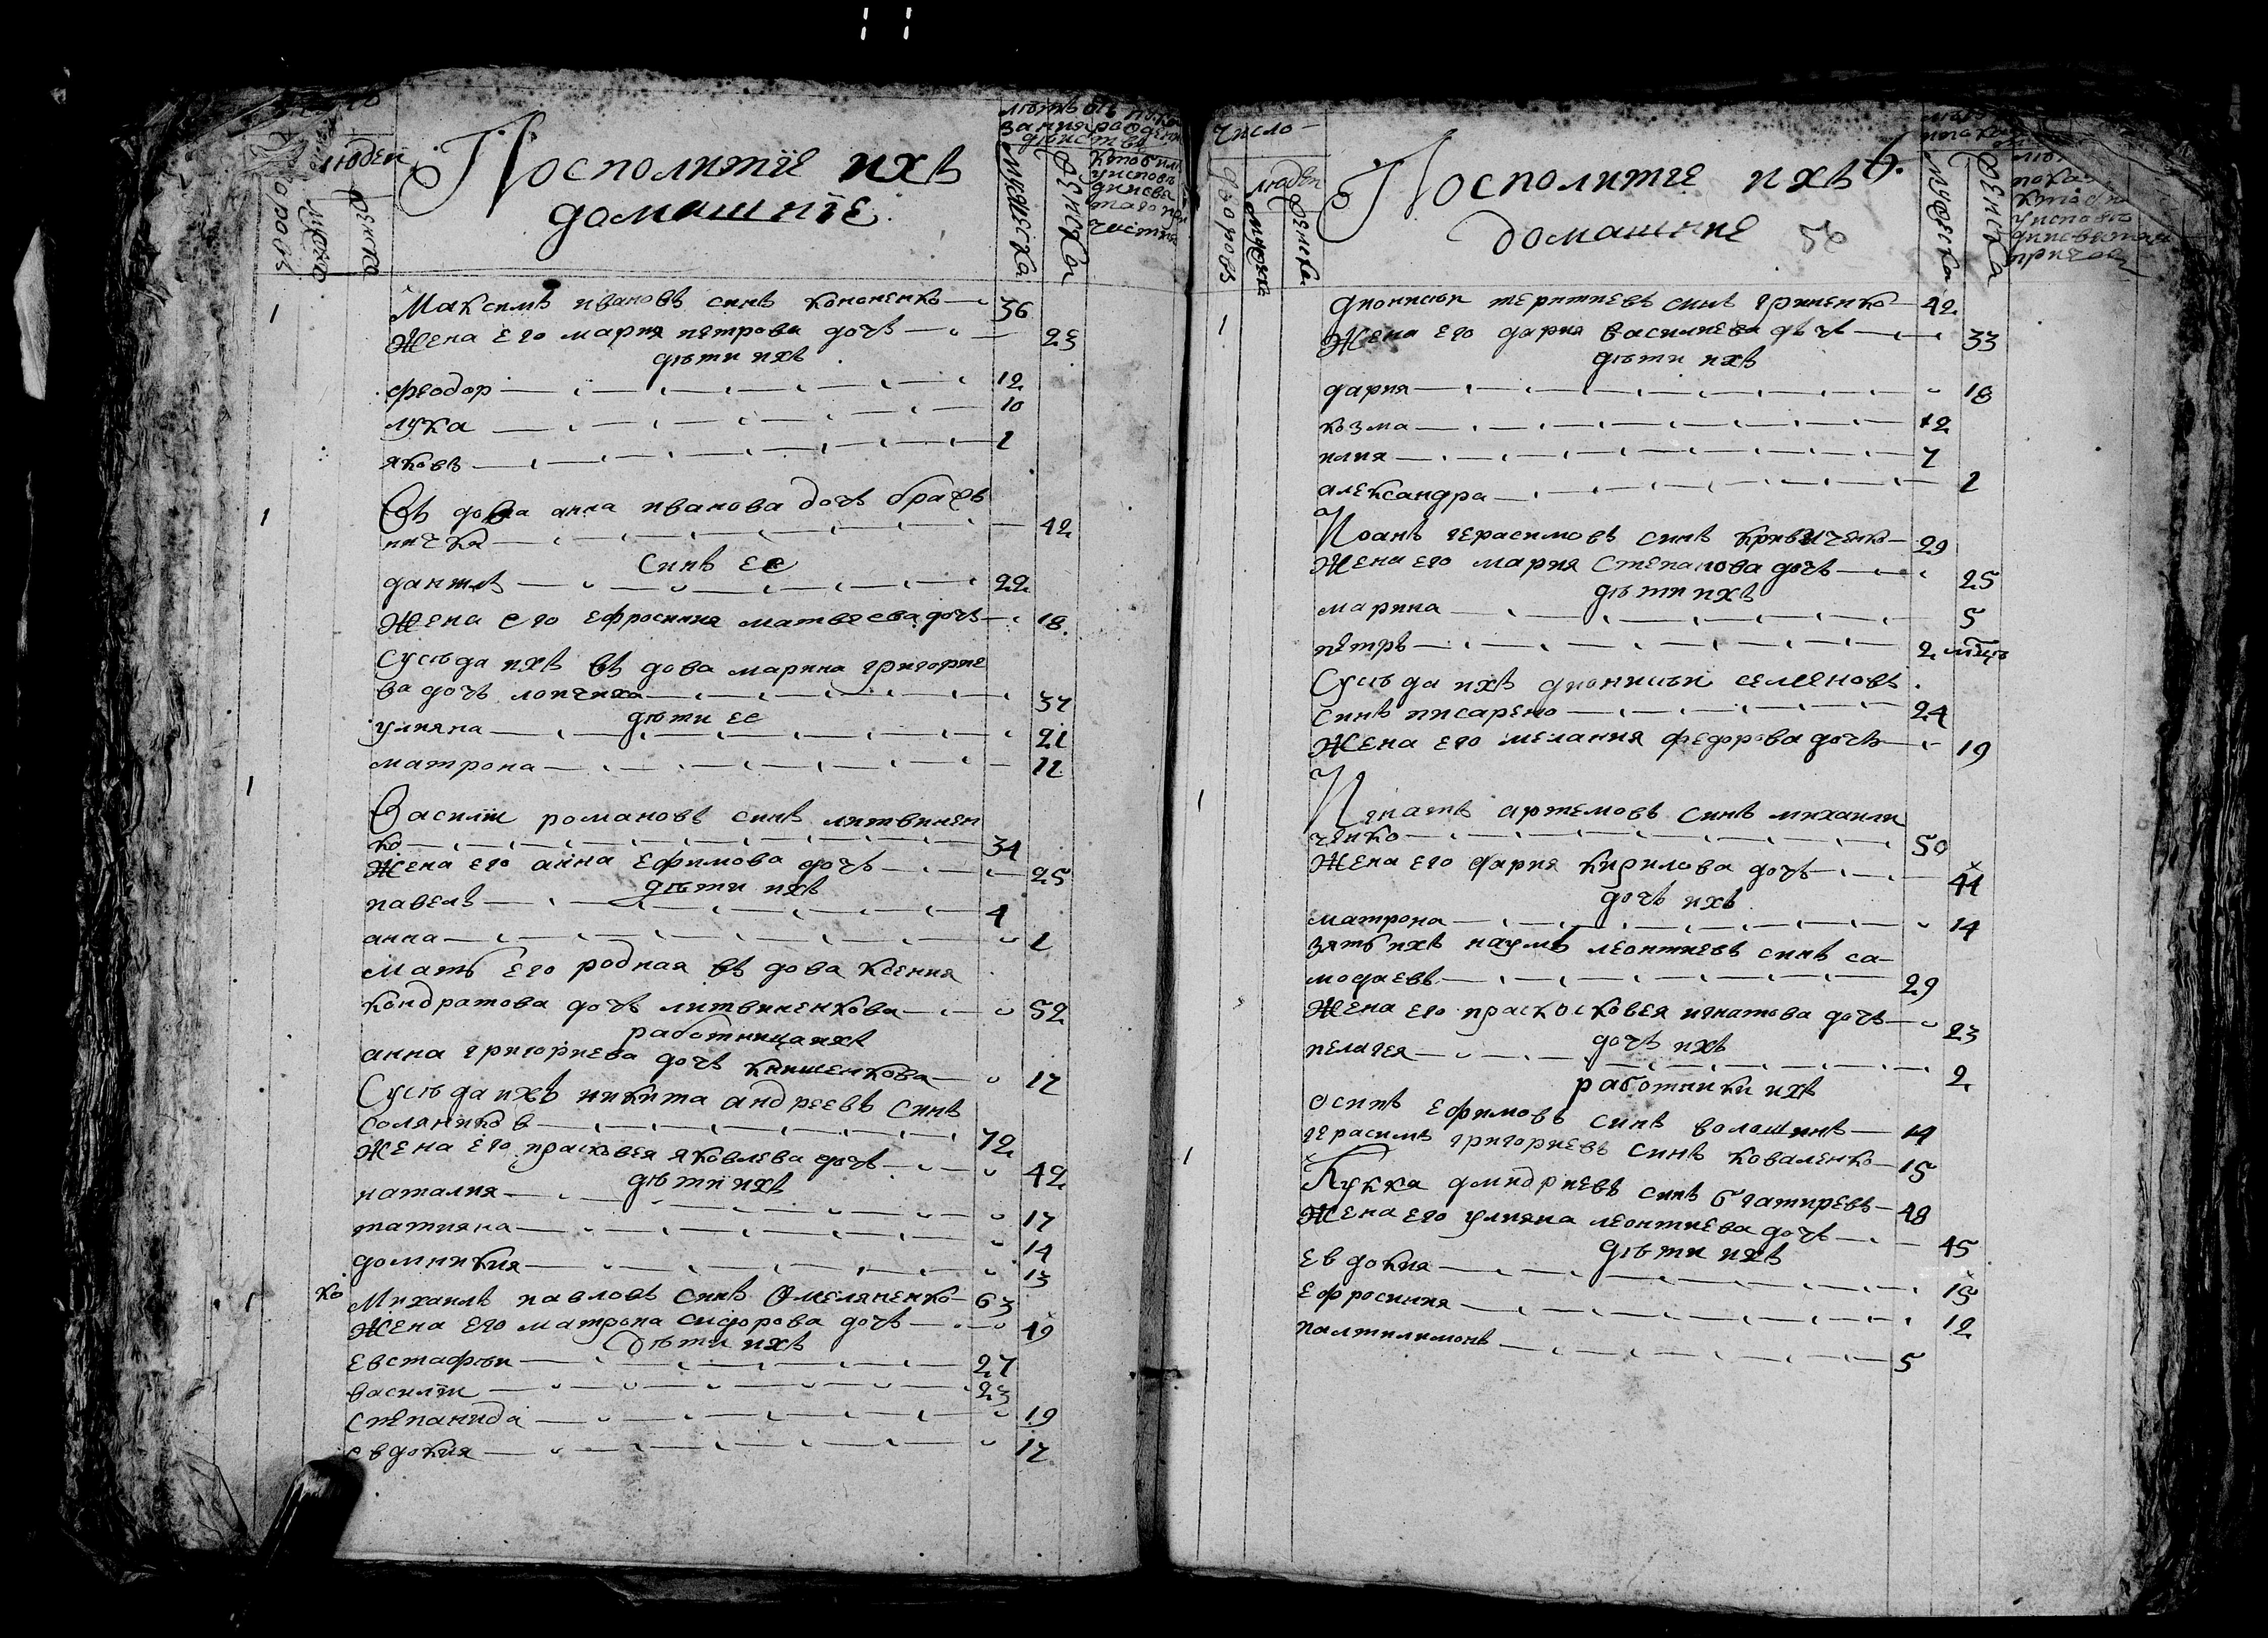 людей
дворовъ
мужеска
женска
Посполитіе ихъ
домашніе
лѣтъ отъ
рожденія
мужеска
женска
1 Максимъ ивановъ синъ кононенко 36
Жена его мария петрова дочъ 23
дѣти ихъ
феодор 12
лука 10
яковъ 1
1 Въ дова анна иванова дочъ браже
ничка 42
Синъ ее
даниилъ 22
Жена его ефросиния матвеева дочъ 18
Сусѣда ихъ въ дова марина григорие
ва дочъ 37
дѣти ее
улияна 21
матрона 11
1 Василій романовъ синъ литвинен
ко 34
Жена его анна ефимова дочъ 25
дѣти ихъ
павелъ 4
анна 1
Мать его родная въ дова ксения
кондратова дочъ литвиненкова 52
работница ихъ
анна григориева дочъ 17
Сусѣда ихъ никита андреевъ синъ
солянико в 72
Жена его прасковея яковлева дочъ 42
дѣти ихъ
наталия 17
татияна 14
домникия 13
1 Михаилъ павловъ синъ Омеляненко 63
Жена его матрона сидорова дочъ 49
Дѣти ихъ
евстафѣи 27
василій 23
степанида 19
евдокия 17
число
людей
дворовъ
мужеска
женска
Посполитіе ихъ
домашние 56
6.
мужеска
женска
1 дионисѣи терентиевъ синъ гриненко 42
Жена его дария василиева дочъ 33
дѣти ихъ
дария 18
козма 12
илия 7
александра 1
Иоанъ герасимовъ синъ кривиченко 29
Жена его мария степанова дочъ 25
дѣти ихъ
марина 5
петръ 2
Сусѣда ихъ дионисѣи семеновъ
синъ писаренко 24
Жена его мелания федорова дочъ 19
1 Игнатъ артемовъ синъ михаили
ченко 50
Жена его дария кирилова дочъ 44
дочъ ихъ
матрона 14
зять ихъ наумъ леонтиевъ синъ са
модаевъ 29
Жена его праскосковея игнатова дочъ 23
дочъ ихъ
пелагея 2
работники ихъ
осипъ ефимовъ синъ волошинъ 19
герасимъ григориевъ синъ коваленко 15
1 Лукка дмидриевъ синъ 48
Жена его улияна леонтиева дочъ 45
дѣти ихъ
евдокия 15
ефросиния 12
палтилимонъ 5